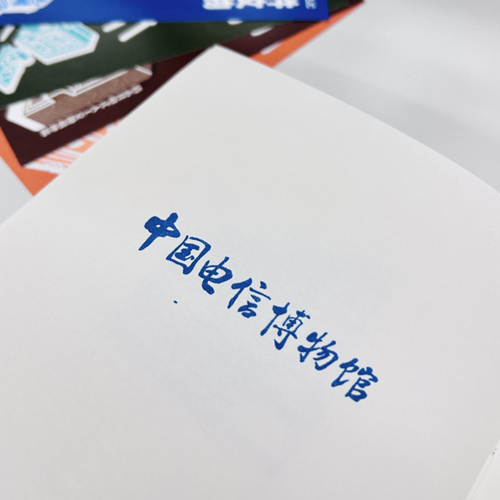 中国电信博物馆